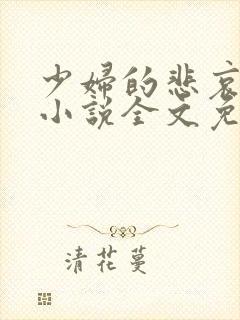 少婦的悲哀
小說全文免
清花蔓